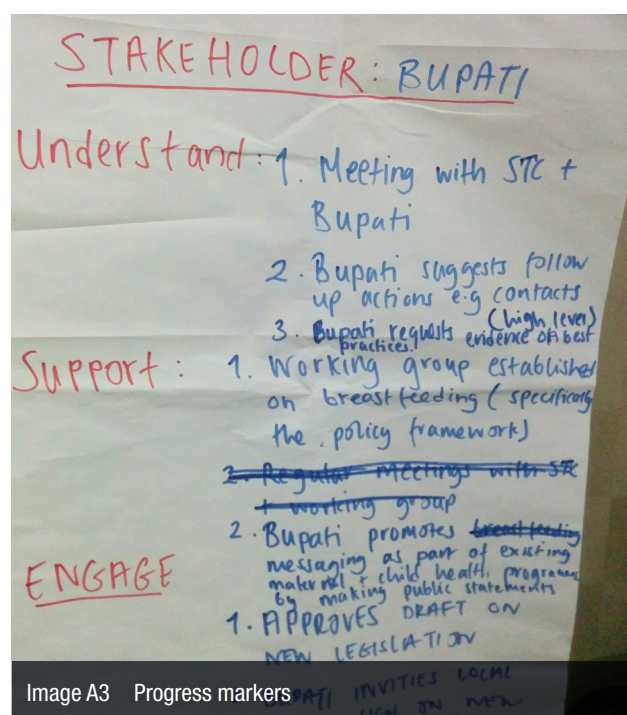 STAKEHOLDER: BUPATI
Understand: 1. Meeting with STC +
Bupati
2. Bupati suggests follow
up actions e.g contacts
(high level)
3. Bupati requests evidence of best
practices.
Support: 1. Working group established
on breastfeeding (specifically
the policy framework)
2. Regular meetings with STC
+ working group
2. Bupati promotes breastfeeding
messaging as part of existing
maternal + child health programmes
by making public statements
ENGAGE
1. APPROVES DRAFT ON
NEW LEGISLATION
BUPATI INVITIES LOCAL
ON NEW
Image A3 Progress markers